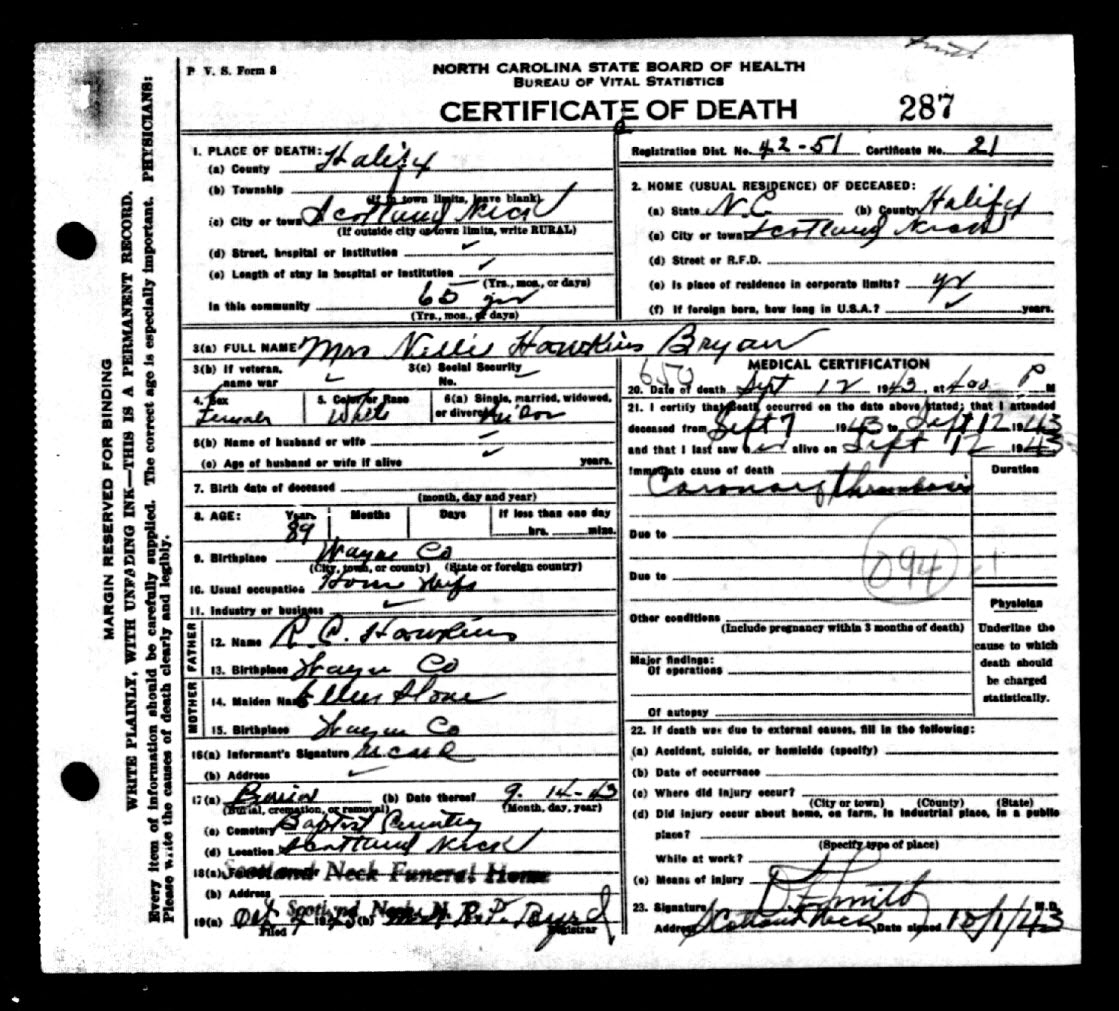 P V. S. Form 8
NORTH CAROLINA STATE BOARD OF HEALTH
BUREAU OF VITAL STATISTICS
CERTIFICATE OF DEATH 287
MARGIN RESERVED FOR BINDING
WRITE PLAINLY, WITH UNFADING INK—THIS IS A PERMANENT RECORD.
Every item of information should be carefully supplied. The correct age is especially important. PHYSICIANS:
Please write the causes of death clearly and legibly.
1. PLACE OF DEATH:
(a) County Halifx
(b) Township
(If in town limits, leave blank)
(c) City or town Scotland Neck
(If outside city or town limits, write RURAL)
(d) Street, hospital or institution ✓
(e) Length of stay in hospital or institution ✓
(Yrs., mos., or days)
In this community 65 yrs
(Yrs., mos., or days)
Registration Dist. No. 42-51 Certificate No. 21
2. HOME (USUAL RESIDENCE) OF DECEASED:
(a) State N.C. (b) County Halifx
(c) City or town Scotland Neck
(d) Street or R.F.D.
(e) Is place of residence in corporate limits?
(f) If foreign born, how long in U.S.A.? ✓ years.
3(a) FULL NAME Mrs Nellie Hawkins Bryan
3(b) If veteran, name war ✓
3(c) Social Security No. ✓
4. Sex Female
5. Color or Race White
6(a) Single, married, widowed, or divorced
6(b) Name of husband or wife
(c) Age of husband or wife if alive years.
7. Birth date of deceased
(month, day and year)
8. AGE: Years 89 Months Days If less than one day hrs. mins.
9. Birthplace Wayne Co
(City, town, or county) (State or foreign country)
10. Usual occupation House Wife
11. Industry or business ✓
FATHER
12. Name R. C. Hawkins
13. Birthplace Wayne Co
MOTHER
14. Maiden Name Ellen
15. Birthplace Wayne Co
16(a) Informant's Signature
(b) Address ✓
17(a) Burial (b) Date thereof 9-14-43
(Burial, cremation, or removal) (Month, day, year)
(c) Cemetery Baptist Cemetery
(d) Location Scotland Neck
18(a) Scotland Neck Funeral Home
(b) Address Scotland Neck, N. C.
19(a) Filed (b) Byrd
Registrar
MEDICAL CERTIFICATION
650
20. Date of death Sept 12 1943 at 4:00 P M
21. I certify that death occurred on the date above stated; that I attended
deceased from Sept 7 1943 to Sept 12 1943
and that I last saw her alive on Sept 12 1943
Immediate cause of death Duration
Coronary thrombosis
Due to
094
Due to
Other conditions
(Include pregnancy within 3 months of death)
Major findings:
Of operations
Of autopsy
Physician
Underline the cause to which death should be charged statistically.
22. If death was due to external causes, fill in the following:
(a) Accident, suicide, or homicide (specify)
(b) Date of occurrence
(c) Where did injury occur?
(City or town) (County) (State)
(d) Did injury occur about home, on farm, in industrial place, in a public
place?
(Specify type of place)
While at work?
(e) Means of injury
23. Signature Smith M.D.
Address Scotland Neck Date signed 10/1/43